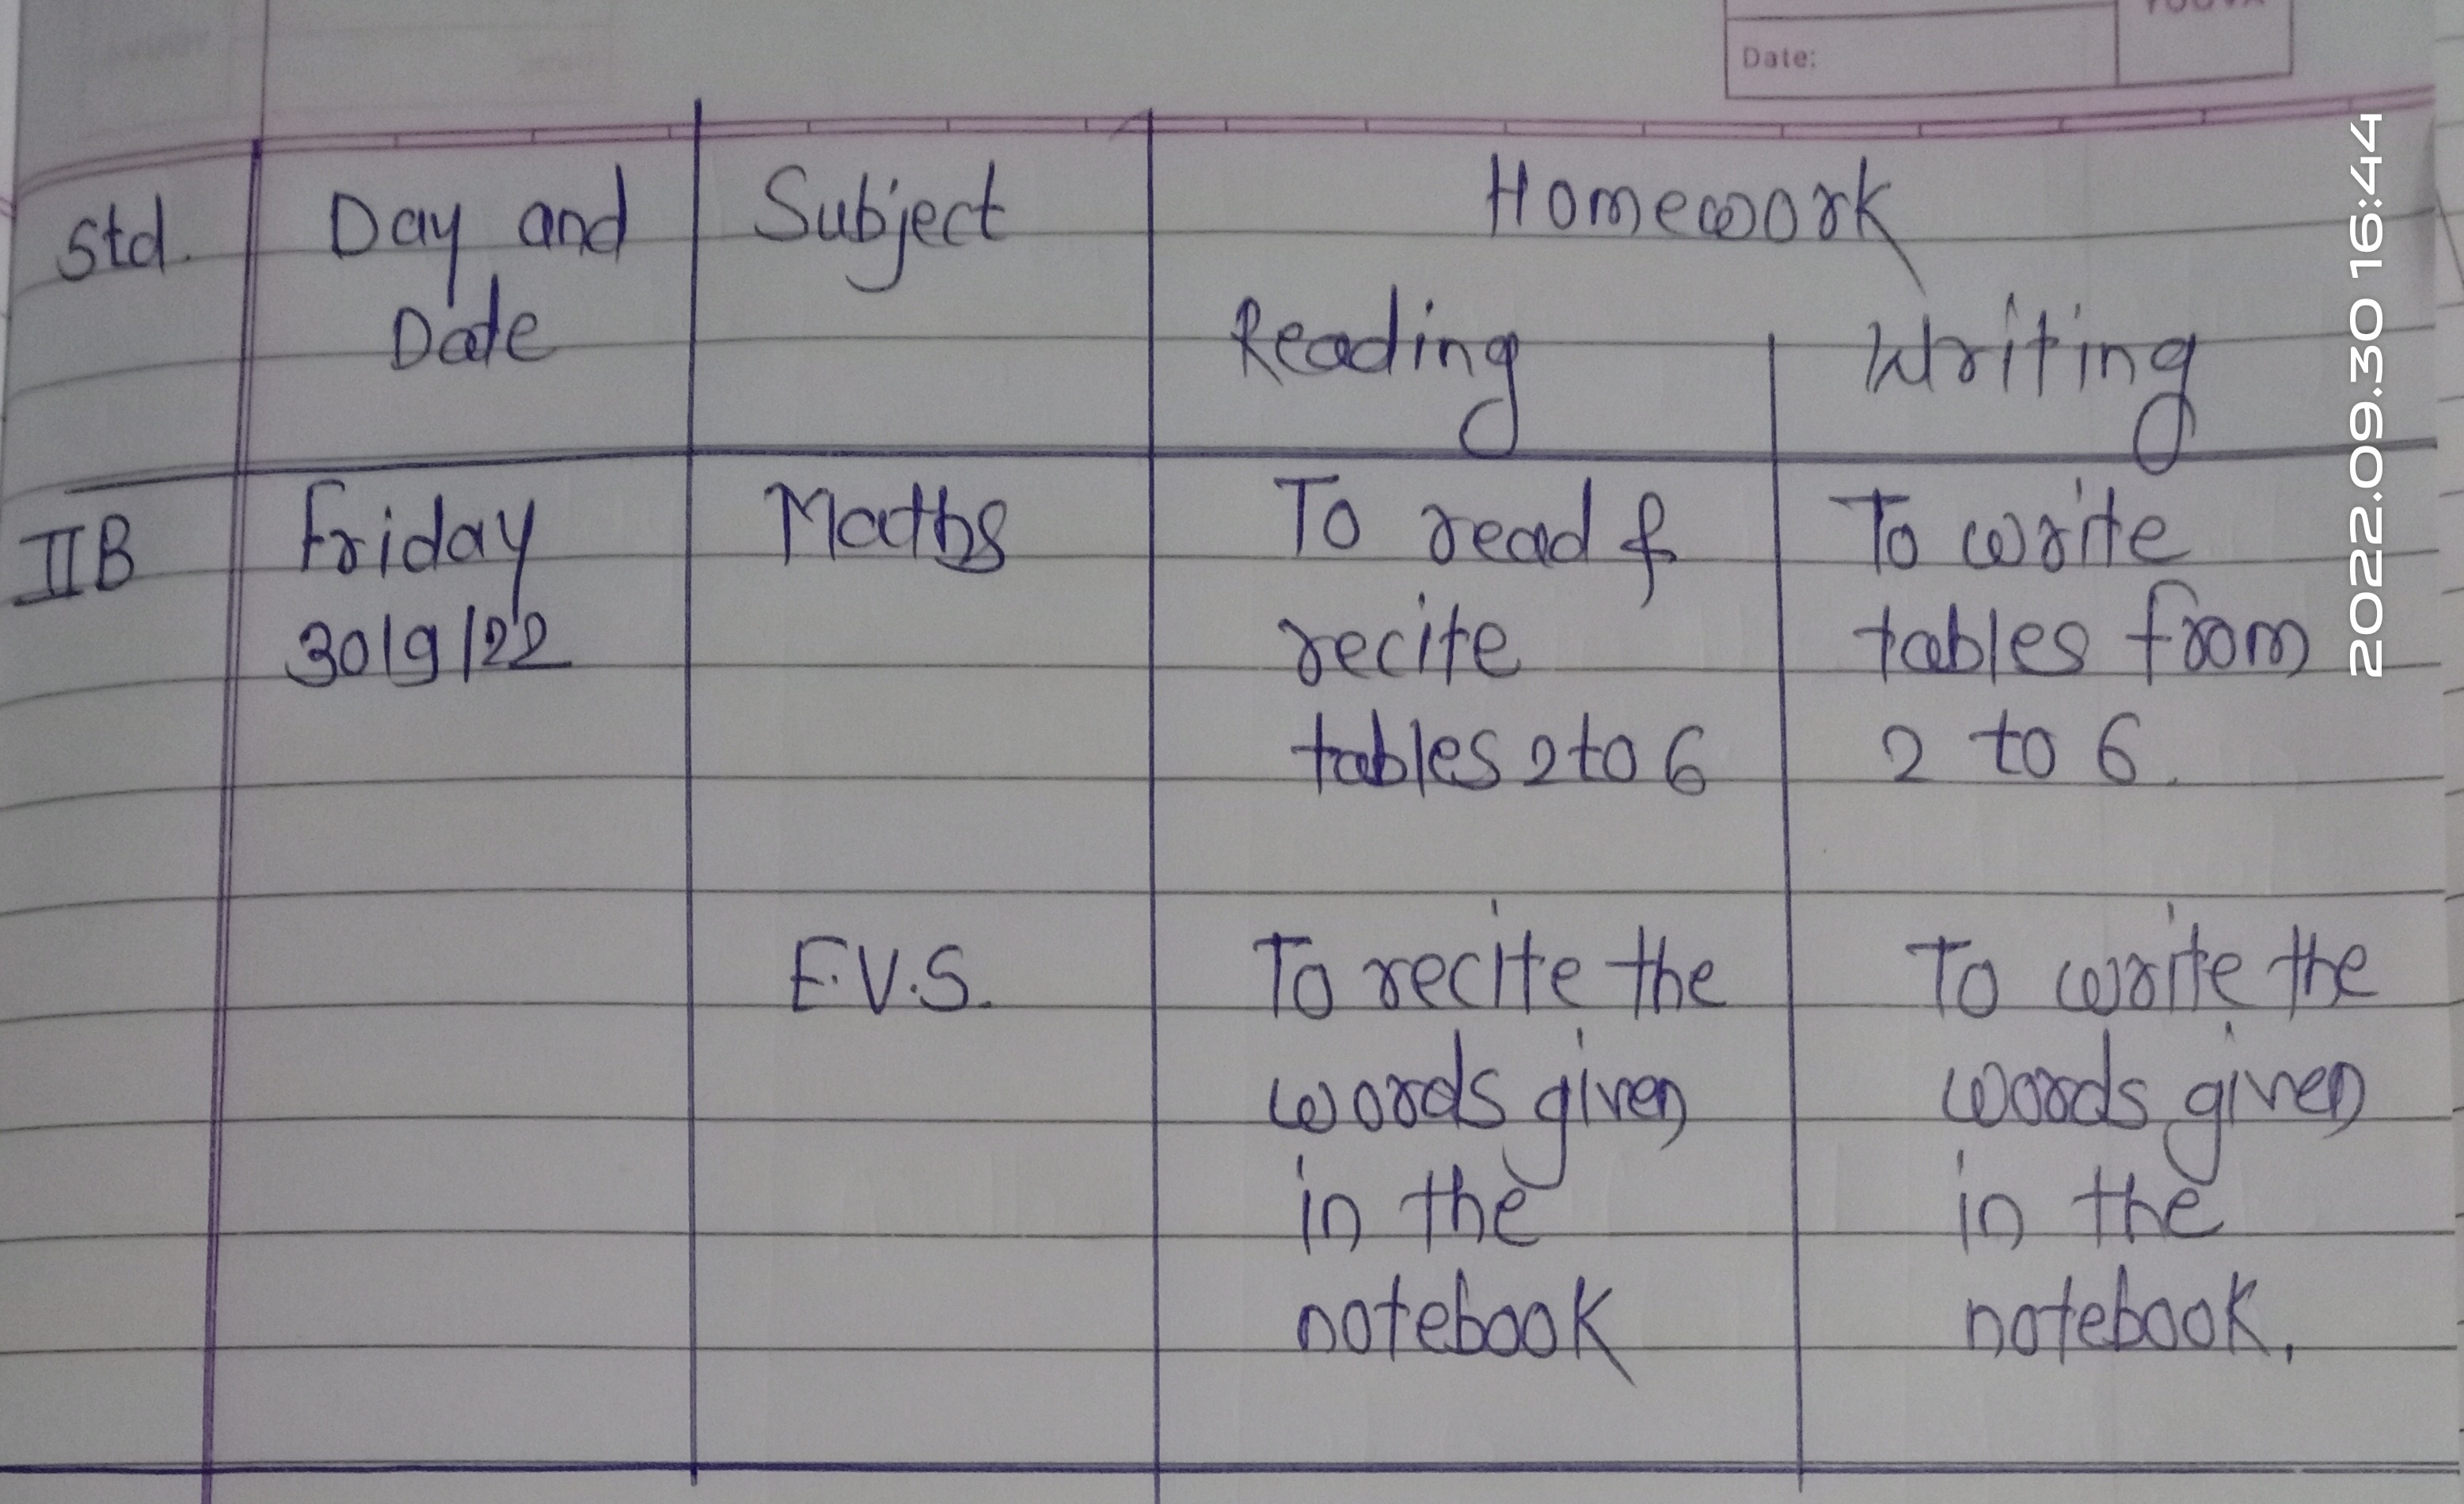 Date:
Std.
Day and
Date
Subject
Homework
Reading
Writing
IIB
Friday
30/9/22
Maths
To read &
recite
tables 2 to 6
To write
tables from
2 to 6.
E.V.S.
To recite the
words given
in the
notebook
To write the
words given
in the
notebook.
2022.09.30 16:44